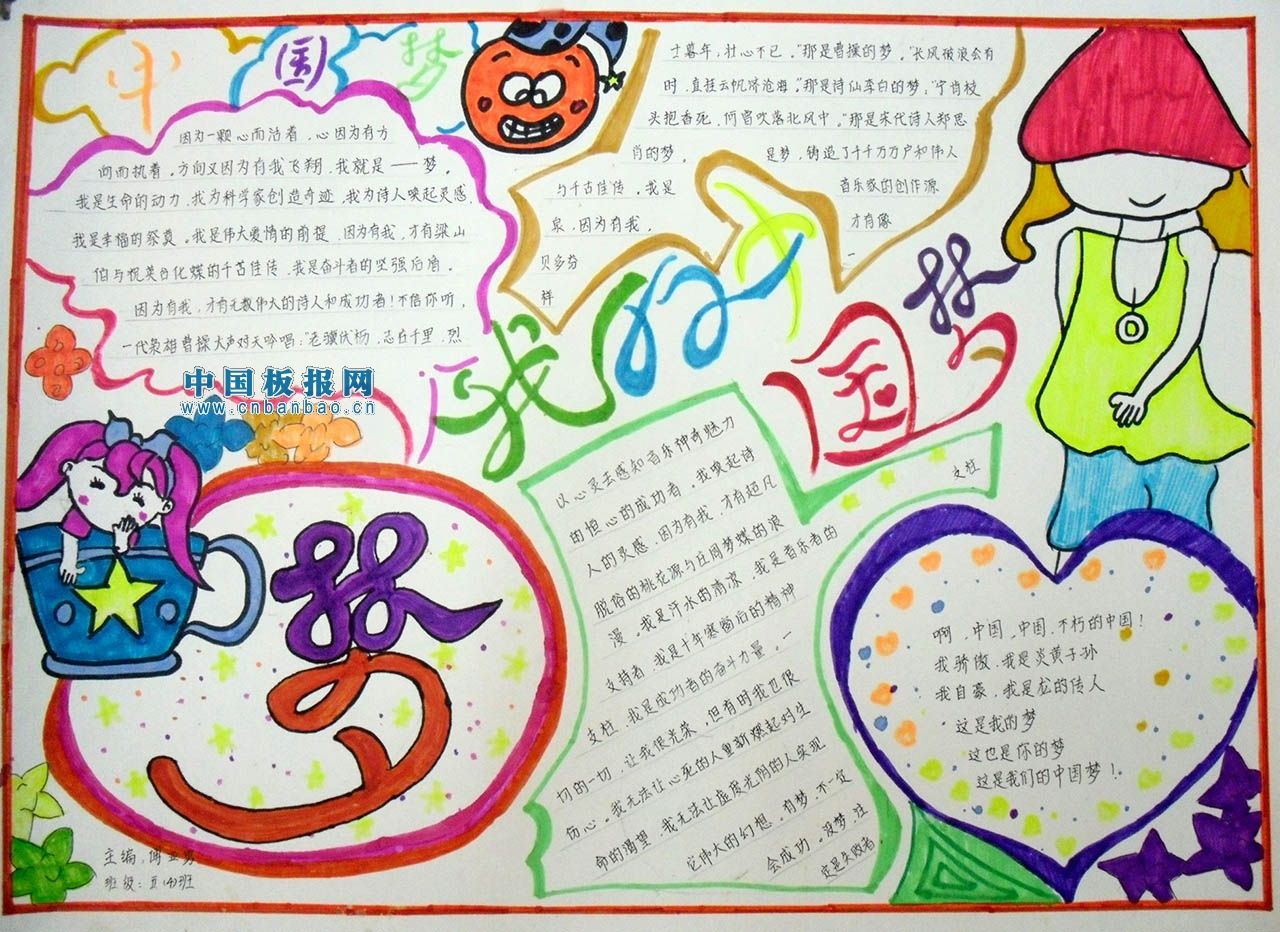 中国梦
因为一颗心而活着，心因为有方
向而执着。方向又因为有我飞翔，我就是——梦。
我是生命的动力，我为科学家创造奇迹，我为诗人唤起灵感，
我是幸福的祭奠。我是伟大爱情的前提，因为有我，才有梁山
伯与祝英台化蝶的千古佳传，我是奋斗者的坚强后盾。
因为有我，才有无数伟大的诗人和成功者！不信你听，
一代枭雄曹操大声对天吟唱：“老骥伏枥，志在千里，烈
士暮年，壮心不已。”那是曹操的梦。“长风破浪会有
时，直挂云帆济沧海。”那是诗仙李白的梦；“宁肯枝
头抱香死，何曾吹落北风中。”那是宋代诗人郑思
肖的梦。 是梦，铸造了千千万万户和伟人
与千古佳传，我是 音乐家的创作源
泉，因为有我， 才有像
贝多芬 一
样
我的中国梦
中国板报网
www.cnbanbao.cn
以心灵去感知音乐神奇魅力
的恒心的成功者。我唤起诗
人的灵感，因为有我，才有超凡
脱俗的桃花源与庄周梦蝶的浪
漫。我是汗水的滴凉，我是音乐者的
支持者，我是十年寒窗后的精神
支柱，我是成功者的奋斗力量。一
切的一切，让我很光荣。但有时我也很
伤心。我无法让心死的人重新燃起对生
命的渴望，我无法让虚度光阴的人实现
它伟大的幻想。有梦，不一定
会成功。没梦，注
定是失败者。
支柱
梦
啊，中国，中国，不朽的中国！
我骄傲，我是炎黄子孙
我自豪，我是龙的传人
这是我的梦
这也是你的梦
这是我们的中国梦！
主编：傅
班级：五(4)班